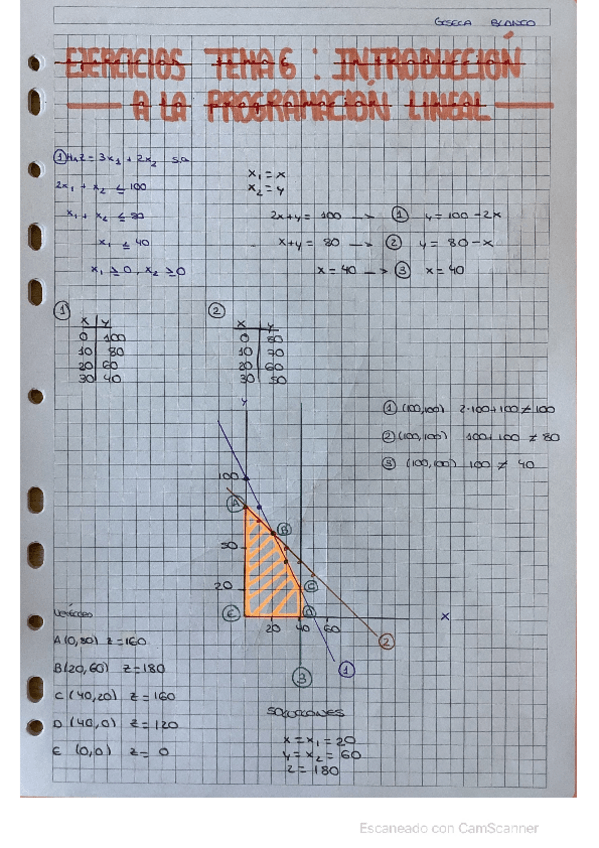 GISECA BLANCO
EJERCICIOS TEMA 6 : INTRODUCCIÓN
A LA PROGRAMACIÓN LINEAL
① z = 3x₁ + 2x₂ s.a
2x₁ + x₂ ≤ 100
x₁ + x₂ ≤ 80
x₁ ≤ 40
x₁ ≥ 0, x₂ ≥ 0
x₁ = x
x₂ = y
2x+y = 100 → ① y = 100 - 2x
x+y = 80 → ② y = 80 - x
x = 40 → ③ x = 40
①
x | y
0 | 100
10 | 80
20 | 60
30 | 40
②
x | y
0 | 80
10 | 70
20 | 60
30 | 50
① (100,100) 2·100+100 ≠ 100
② (100,100) 100+100 ≠ 80
③ (100,100) 100 ≠ 40
Y
100
A
B
50
20
C
E
D
X
20 40 60
②
①
③
A (0,80) z = 160
B (20,60) z = 180
C (40,20) z = 160
D (40,0) z = 120
E (0,0) z = 0
SOLUCIONES
x = x₁ = 20
y = x₂ = 60
z = 180
Escaneado con CamScanner